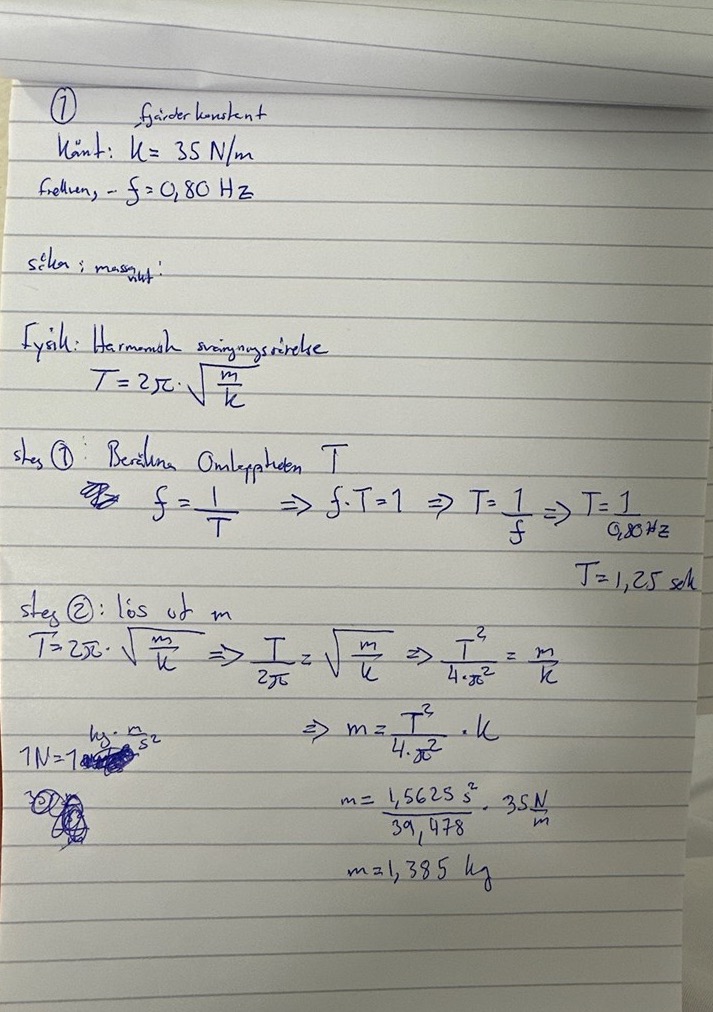 ①
fjärderkonstant
Känt: k = 35 N/m
frekven, - f = 0,80 Hz
söker ; massa vikt :
Fysik: Harmonisk svängningsrörelse
T = 2π · √(m/k)
steg ①: Beräkna Omloppstiden T
f = 1/T ⇒ f · T = 1 ⇒ T = 1/f ⇒ T = 1/0,80 Hz
T = 1,25 sek
steg ②: lös ut m
T = 2π · √(m/k) ⇒ T/2π = √(m/k) ⇒ T²/4·π² = m/k
⇒ m = T²/4·π² · k
1N = 1 kg · m/s²
m = 1,5625 s²/39,478 · 35 N/m
m = 1,385 kg